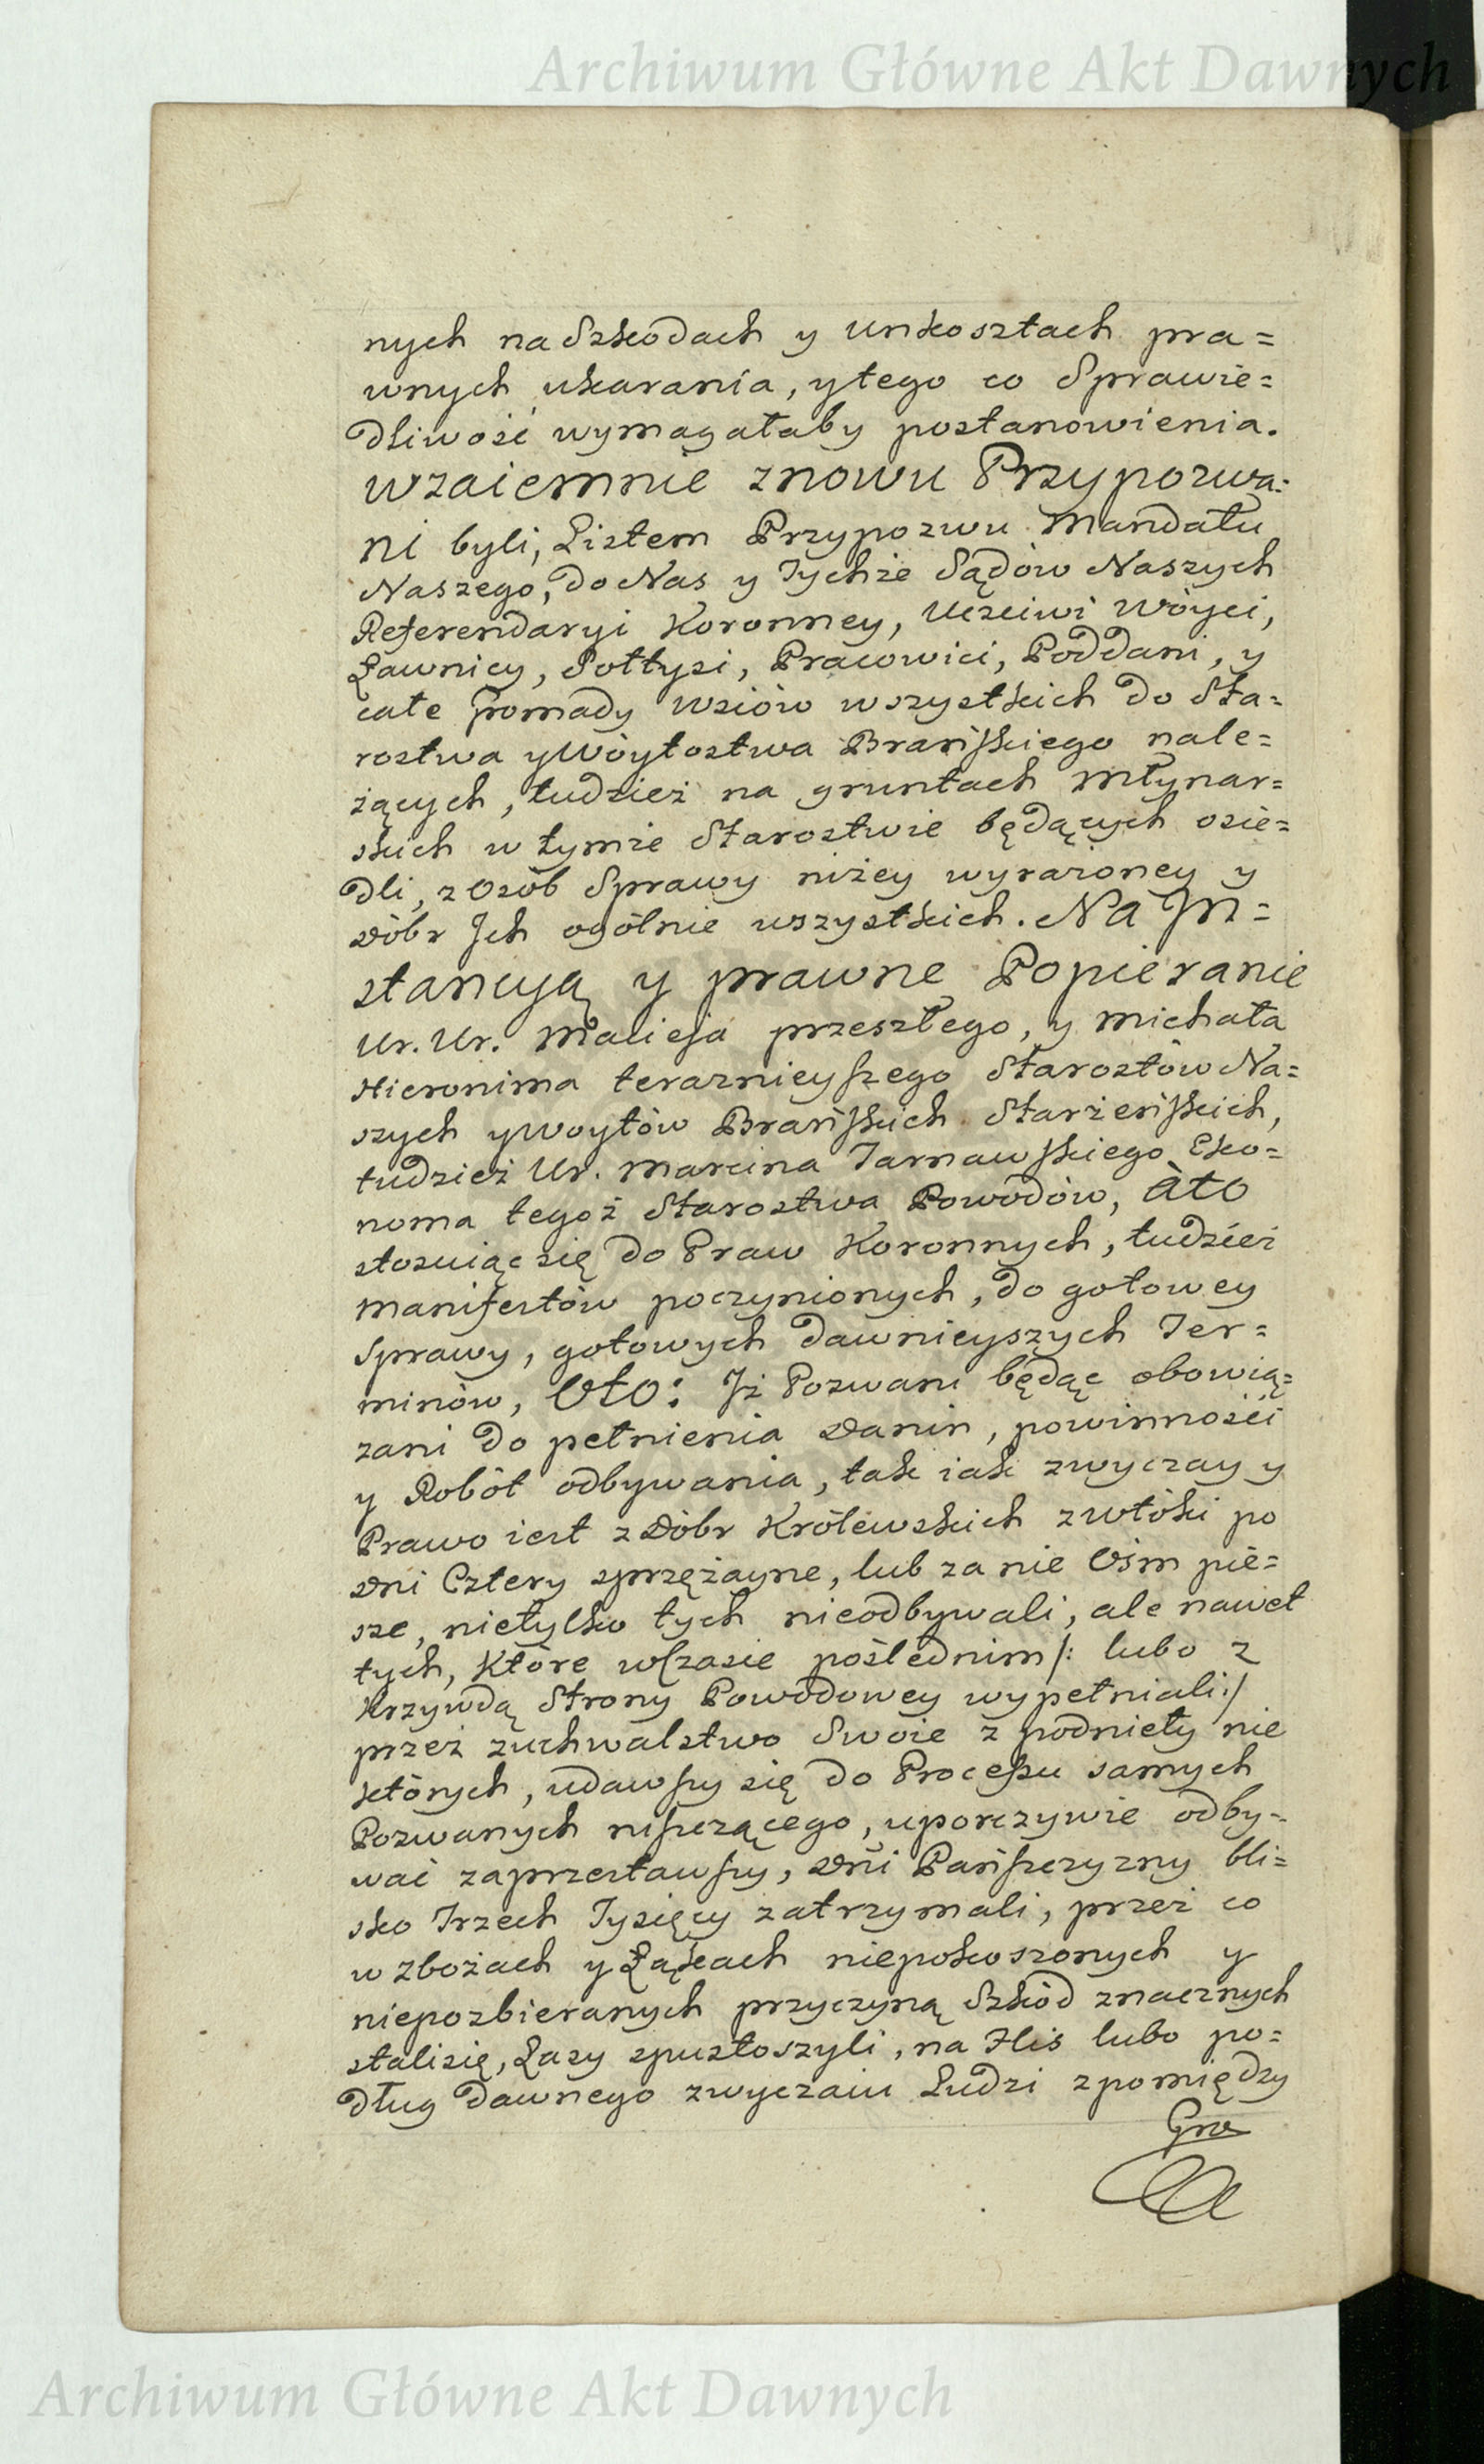 Archiwum Główne Akt Dawnych
nych na Szkodach y unkosztach pra=
wnych ukarania, y tego co Sprawie=
dliwość wymagałaby postanowienia.
Wzaiemnie znowu Przypozwa=
ni byli, Listem Przypozwu Mandatu
Naszego, do Nas y Tychże Sądów Naszych
Referendaryi Koronney, Uczciwi Wóyci,
Ławnicy, Sołtysi, Pracowici, Poddani, y
całe Gromady Wsiów wszystkich do Sta=
rostwa y Wóytostwa Brańskiego nale=
żących, tudzież na gruntach Młynar=
skich w tymże Starostwie będących osie=
dli, z Osób Sprawy niżey wyrażoney y
Dóbr Jch ogólnie wszystkich. Na Jn=
stancyą y prawne Popieranie
Ur. Ur. Macieja przeszłego, y Michała
Hieronima teraznieyszego Starostów Na=
szych y Woytów Brańskich Starzeńskich,
tudzież Ur. Marcina Tarnawskiego Eko=
noma tegoż Starostwa Powodów, Ato
stosuiąc się do Praw Koronnych, tudzież
Manifestów poczynionych, do gotowey
Sprawy, gotowych dawnieyszych Ter=
minów, Oto: Jż Pozwani będąc obowią=
zani do pełnienia Danin, powinności
y Robót odbywania, tak iak zwyczay y
Prawo iest z Dóbr Królewskich z włóki po
Dni Cztery sprzężayne, lub za nie Ośm pie=
sze, nietylko tych nieodbywali, ale nawet
tych, które w Czasie poślednim /: lubo z
Krzywdą Strony Powodowey wypełniali :/
przez zuchwalstwo Swoie z podniety nie
których, udawszy się do Processu samych
Pozwanych niszczącego, uporczywie odby=
wać zaprzestawszy, Dni Pańszczyzny bli=
sko Trzech Tysięcy zatrzymali, przez co
w zbożach y Łąkach niepokoszonych y
niepozbieranych przyczyną Szkód znacznych
stali się, Lasy spustoszyli, na Flis lubo po=
dług dawnego zwyczaiu Ludzi z pomiędzy
Gro
Archiwum Główne Akt Dawnych